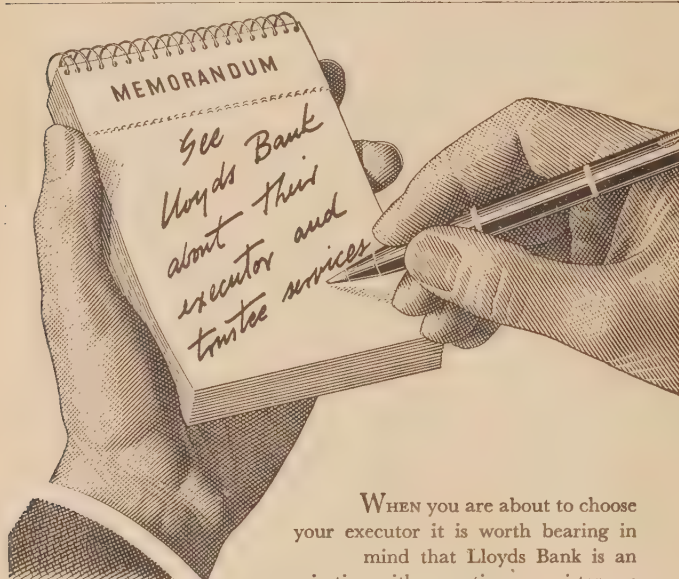 MEMORANDUM
See
Lloyds Bank
about their
executor and
trustee services
WHEN you are about to choose
your executor it is worth bearing in
mind that Lloyds Bank is an